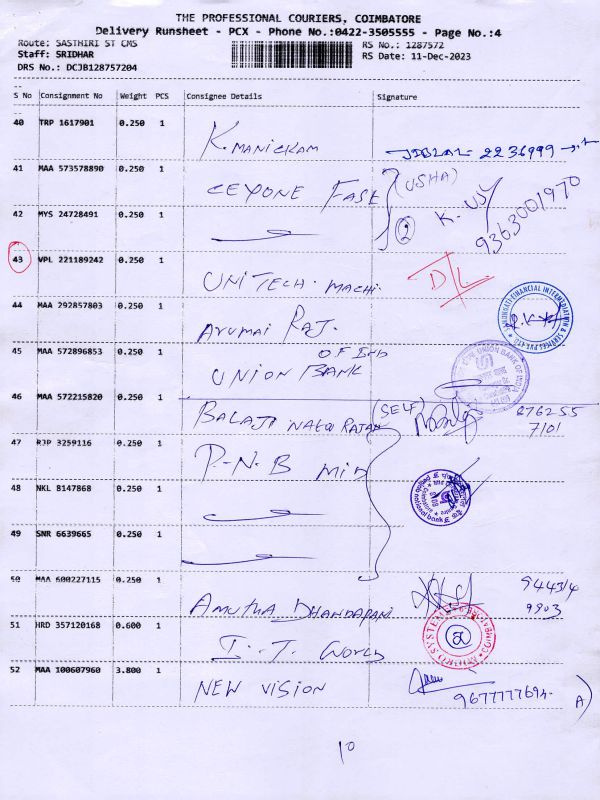 THE PROFESSIONAL COURIERS, COIMBATORE
Delivery Runsheet - PCX - Phone No.:0422-3505555 - Page No.:4
Route: SASTHIRI ST CMS RS No.: 1287572
Staff: SRIDHAR RS Date: 11-Dec-2023
DRS No.: DCJB128757204
S No Consignment No Weight PCS Consignee Details Signature
40 TRP 1617901 0.250 1 K. MANICKAM 2236999
41 MAA 573578890 0.250 1 CEYONE (USHA)
42 MYS 24728491 0.250 1 2 K. USY
9363001970
43 VPL 221189242 0.250 1 UNITECH. MACHI. D/L
44 MAA 292857803 0.250 1 ARUMAI RAJ.
45 MAA 572896853 0.250 1 UNION BANK OF IND
46 MAA 572215820 0.250 1 BALAJI RAJAN (SELF) 676255
7101
47 RJP 3259116 0.250 1 P-N-B MID
48 NKL 8147868 0.250 1
punjab national bank
49 SNR 6639665 0.250 1
50 MAA 600227115 0.250 1 AMUTHA DHANDAPANI 94434
9903
51 HRD 357120168 0.600 1 I.T. WORLD
52 MAA 100607960 3.800 1 NEW VISION 9677777694
A)
10